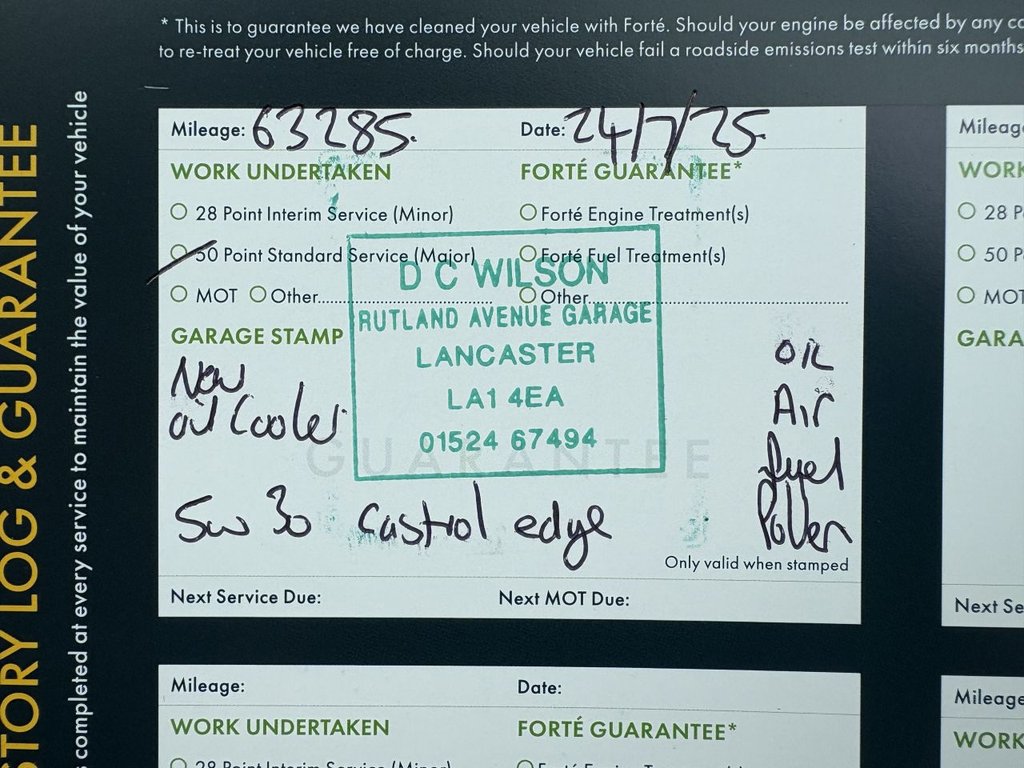 * This is to guarantee we have cleaned your vehicle with Forté. Should your engine be affected by any
to re-treat your vehicle free of charge. Should your vehicle fail a roadside emissions test within six months
STORY LOG & GUARANTEE
completed at every service to maintain the value of your vehicle
Mileage: 63285. Date: 24/7/25.
WORK UNDERTAKEN FORTÉ GUARANTEE*
28 Point Interim Service (Minor) Forté Engine Treatment(s)
50 Point Standard Service (Major) Forté Fuel Treatment(s)
MOT Other Other
GARAGE STAMP
D C WILSON
RUTLAND AVENUE GARAGE
LANCASTER
LA1 4EA
01524 67494
New
oil Cooler
OIL
Air
fuel
Pollen
GUARANTEE
5w 30 Castrol edge
Only valid when stamped
Next Service Due: Next MOT Due:
Mileage: Date:
WORK UNDERTAKEN FORTÉ GUARANTEE*
28 Point Interim Service (Minor)
Mileage
WORK
28 P
50 P
MOT
GARA
Next Se
Mileage
WORK